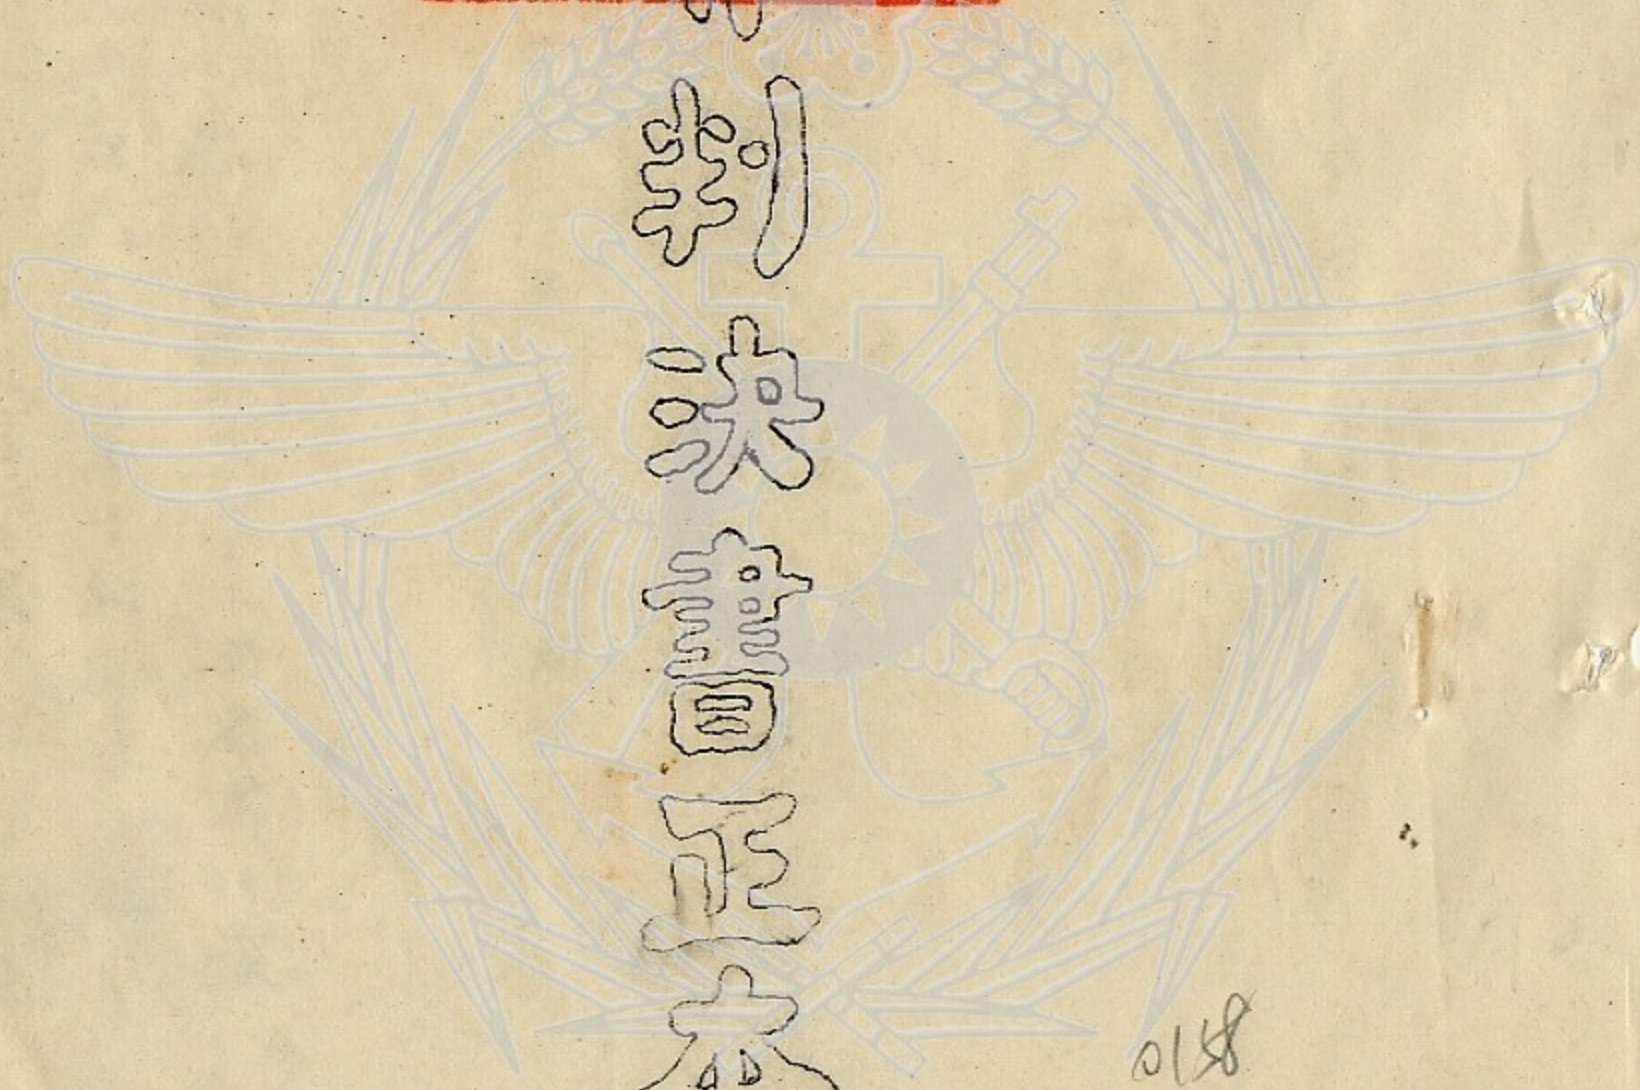 判決書正本
0158